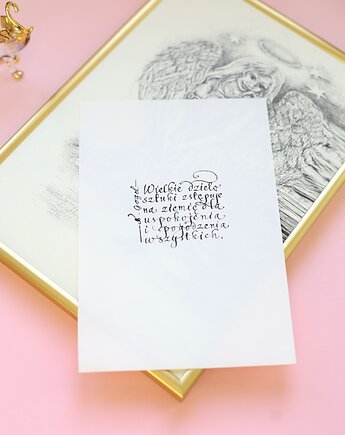 Wielkie dzieło
sztuki zstępuje
na ziemię dla
uspokojenia
i pogodzenia
wszystkich.